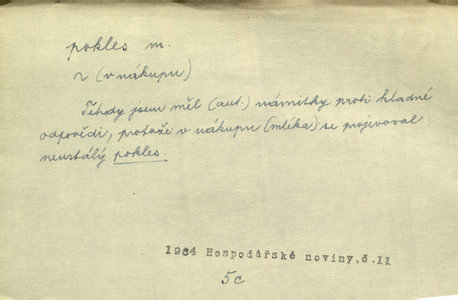 pokles m.
~ (v nákupu)
Tehdy jsem měl (aut.) námitky proti kladné
odpovědi, protože v nákupu (mléka) se projevoval
neustálý pokles.
1964 Hospodářské noviny, č.11
5c